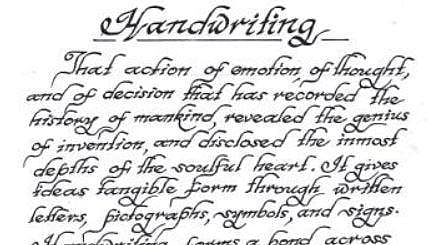 Handwriting
That action of emotion, of thought,
and of decision that has recorded the
history of mankind, revealed the genius
of invention, and disclosed the inmost
depths of the soulful heart. It gives
ideas tangible form through written
letters, pictographs, symbols, and signs.
Handwriting forms a bond across